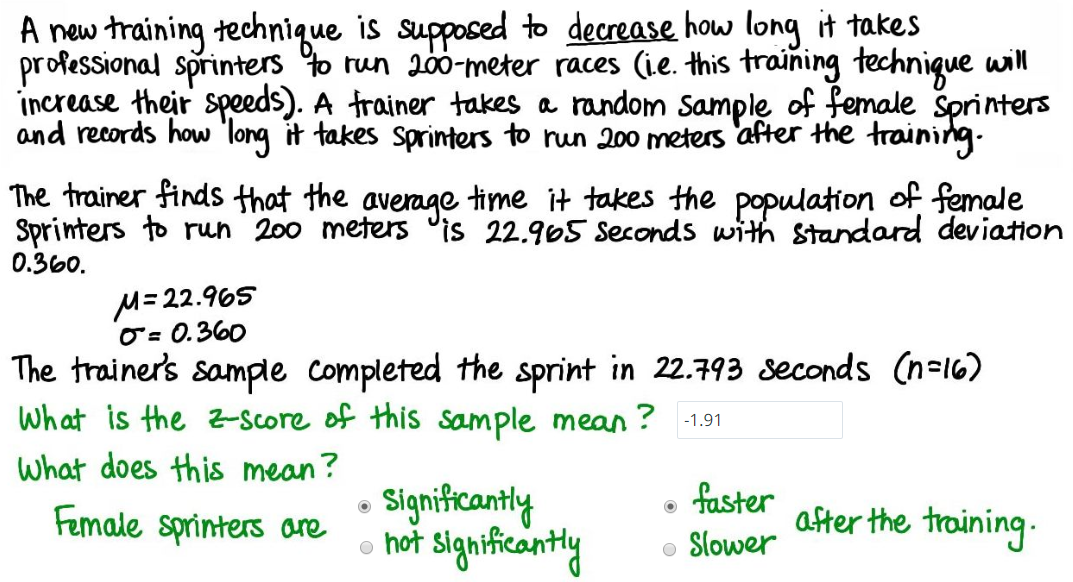 A new training technique is supposed to decrease how long it takes
professional sprinters to run 200-meter races (i.e. this training technique will
increase their speeds). A trainer takes a random sample of female sprinters
and records how long it takes sprinters to run 200 meters after the training.
The trainer finds that the average time it takes the population of female
Sprinters to run 200 meters is 22.965 seconds with standard deviation
0.360.
μ=22.965
σ = 0.360
The trainer's sample completed the sprint in 22.793 seconds (n=16)
What is the z-score of this sample mean? -1.91
What does this mean?
Female sprinters are significantly faster after the training.
not significantly slower